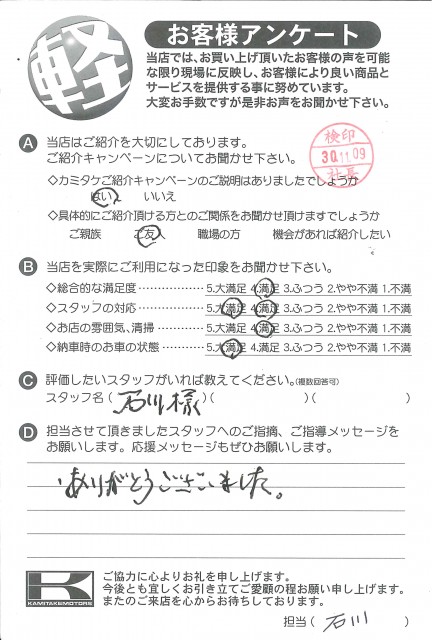 軽
お客様アンケート
当店では、お買い上げ頂いたお客様の声を可能
な限り現場に反映し、お客様により良い商品と
サービスを提供する事に努めています。
大変お手数ですが是非お声をお聞かせ下さい。
検印
30.11.09
社長
A 当店はご紹介を大切にしております。
ご紹介キャンペーンについてお聞かせ下さい。
◇カミタケご紹介キャンペーンのご説明はありましたでしょうか
はい いいえ
◇具体的にご紹介頂ける方とのご関係をお聞かせ頂けますでしょうか
ご親族 ご友人 職場の方 機会があれば紹介したい
B 当店を実際にご利用になった印象をお聞かせ下さい。
◇総合的な満足度……………5.大満足 4.満足 3.ふつう 2.やや不満 1.不満
◇スタッフの対応……………5.大満足 4.満足 3.ふつう 2.やや不満 1.不満
◇お店の雰囲気、清掃………5.大満足 4.満足 3.ふつう 2.やや不満 1.不満
◇納車時のお車の状態………5.大満足 4.満足 3.ふつう 2.やや不満 1.不満
C 評価したいスタッフがいれば教えてください。(複数回答可)
スタッフ名( 石川様 )( )( )
D 担当させて頂きましたスタッフへのご指摘、ご指導メッセージを
お願いします。応援メッセージもぜひお願いします。
ありがとうございました。
K
KAMITAKEMOTORS
ご協力に心よりお礼を申し上げます。
今後とも宜しくお引き立てご愛顧の程お願い申し上げます。
またのご来店を心からお待ちしております。
担当( 石川 )